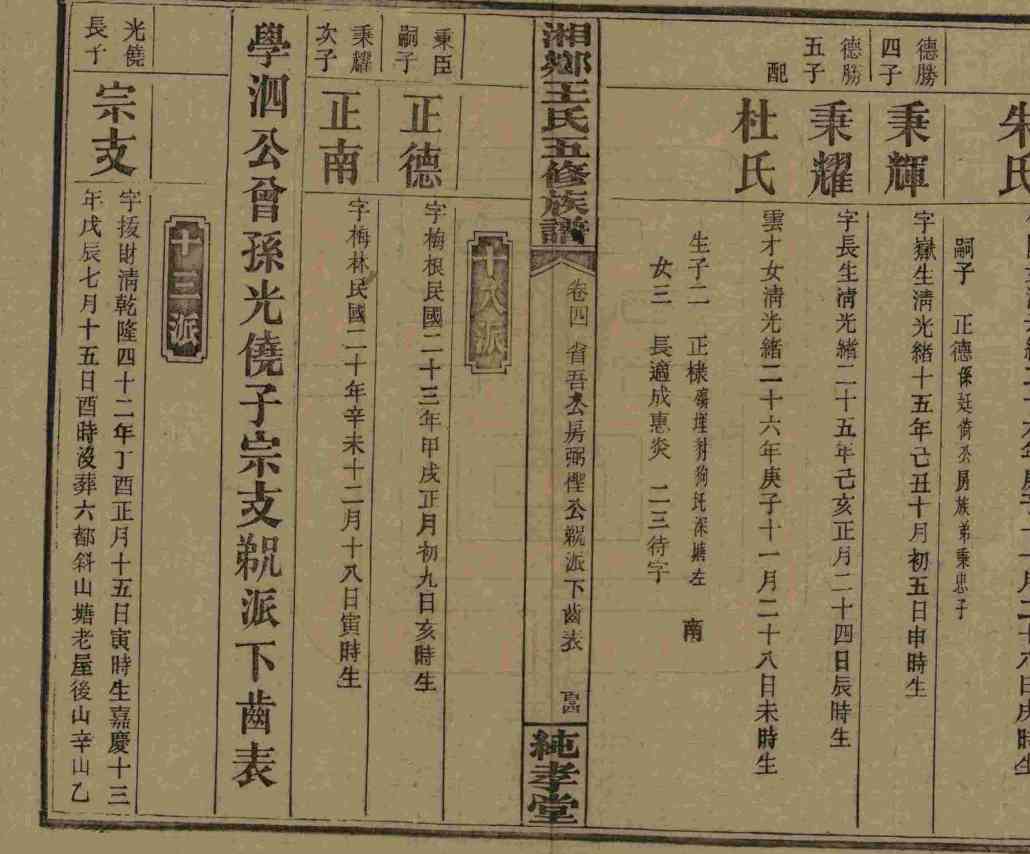 朱氏
嗣子 正德係廷倚公房族弟秉忠子
德勝四子
秉輝
字嶽生清光緒十五年己丑十月初五日申時生
德勝五子
秉耀
字長生清光緒二十五年己亥正月二十四日辰時生
配
杜氏
雲才女清光緒二十六年庚子十一月二十八日未時生
生子二 正棣 南
女三 長適成惠炎 二三待字
湘鄉王氏五修族譜
卷四 省吾公房弼 公 派下齒表
純孝堂
十八派
秉臣嗣子
正德
字梅根民國二十三年甲戌正月初九日亥時生
秉耀次子
正南
字梅林民國二十年辛未十二月十八日寅時生
學泗公曾孫光僥子宗支 派下齒表
十三派
光僥長子
宗支
字援財清乾隆四十二年丁酉正月十五日寅時生嘉慶十三
年戊辰七月十五日酉時沒葬六都斜山塘老屋後山辛山乙